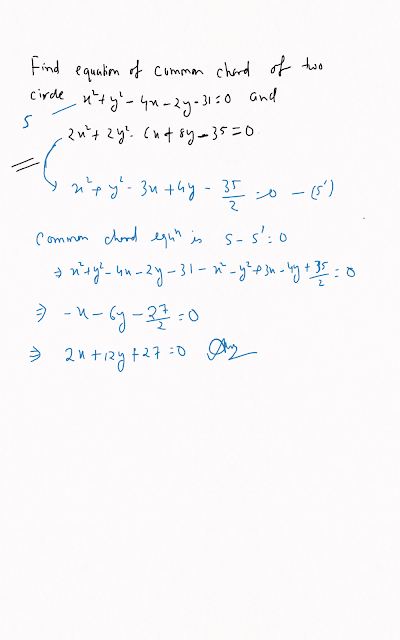 Find equation of common chord of two
circle x² + y² - 4x - 2y - 31 = 0 and
S
2x² + 2y² - 6x + 8y - 35 = 0
x² + y² - 3x + 4y - 35/2 = 0 - (S')
Common chord eqⁿ is S - S' = 0
⇒ x² + y² - 4x - 2y - 31 - x² - y² + 3x - 4y + 35/2 = 0
⇒ -x - 6y - 27/2 = 0
⇒ 2x + 12y + 27 = 0 Ans